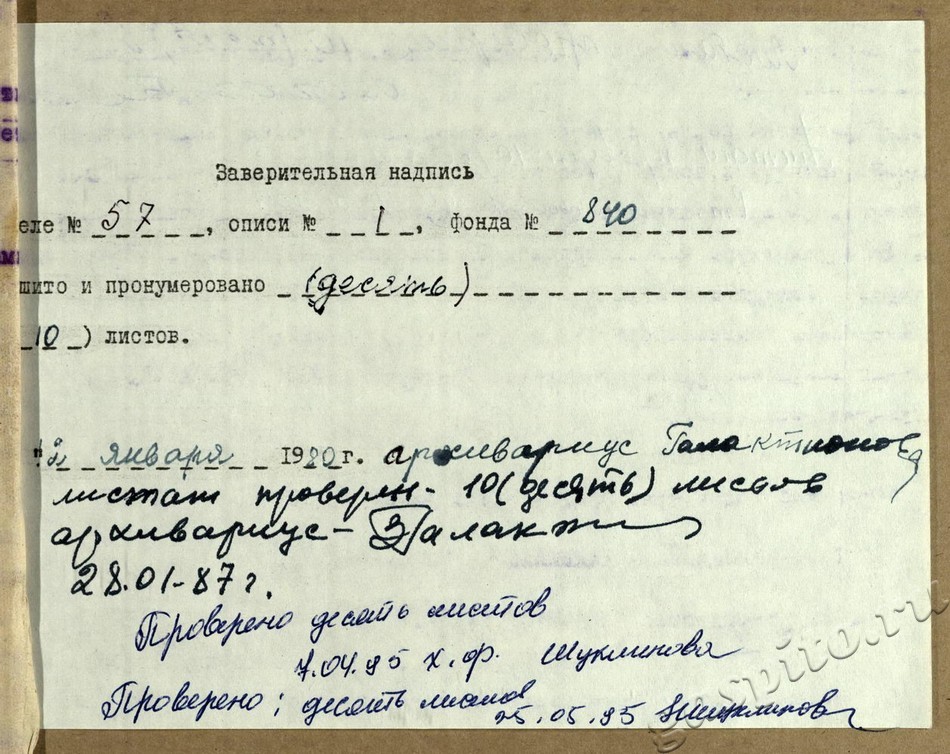 Заверительная надпись
еле № 57, описи № 1, фонда № 840
шито и пронумеровано (десять)
10) листов.
января 1980 г. архивариус Галактионова
листаж проверен - 10 (десять) листов
архивариус - Галакт
28.01-87 г.
Проверено десять листов
7.04.95 х.ф. Шуклинова
Проверено; десять листов
25.05.95 Шуклинова
gaspito.ru